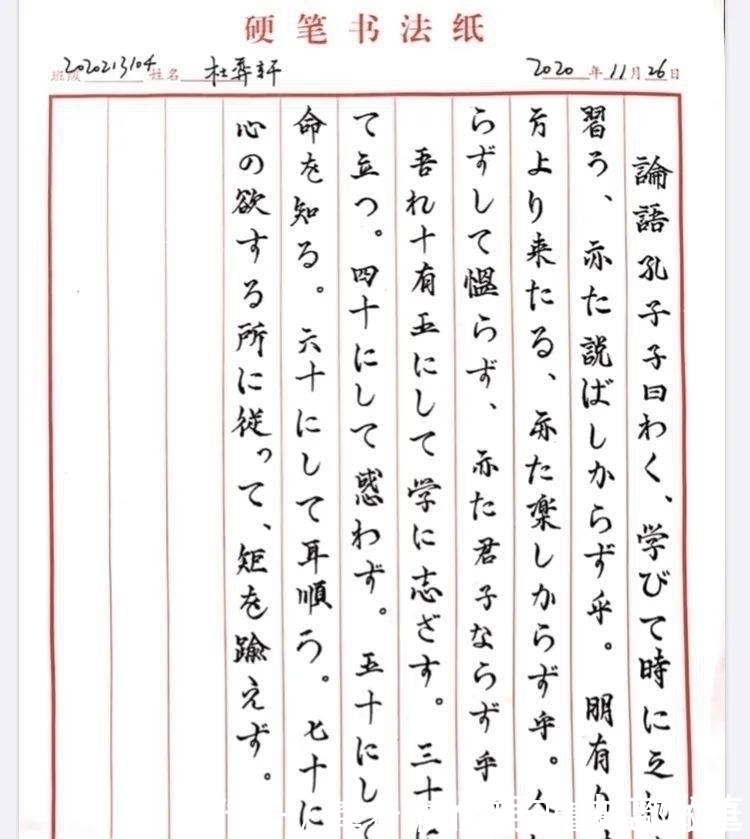 硬笔书法纸
班级 2020213104 姓名 杜霽軒 2020年11月26日
論語孔子子曰わく、学びて時に之
習う、亦た説ばしからず乎。朋有り
方より来たる、亦た楽しからず乎。
らずして慍らず、亦た君子ならず乎
吾れ十有五にして学に志ざす。三十に
て立つ。四十にして惑わず。五十にして
命を知る。六十にして耳順う。七十に
心の欲する所に従って、矩を踰えず。